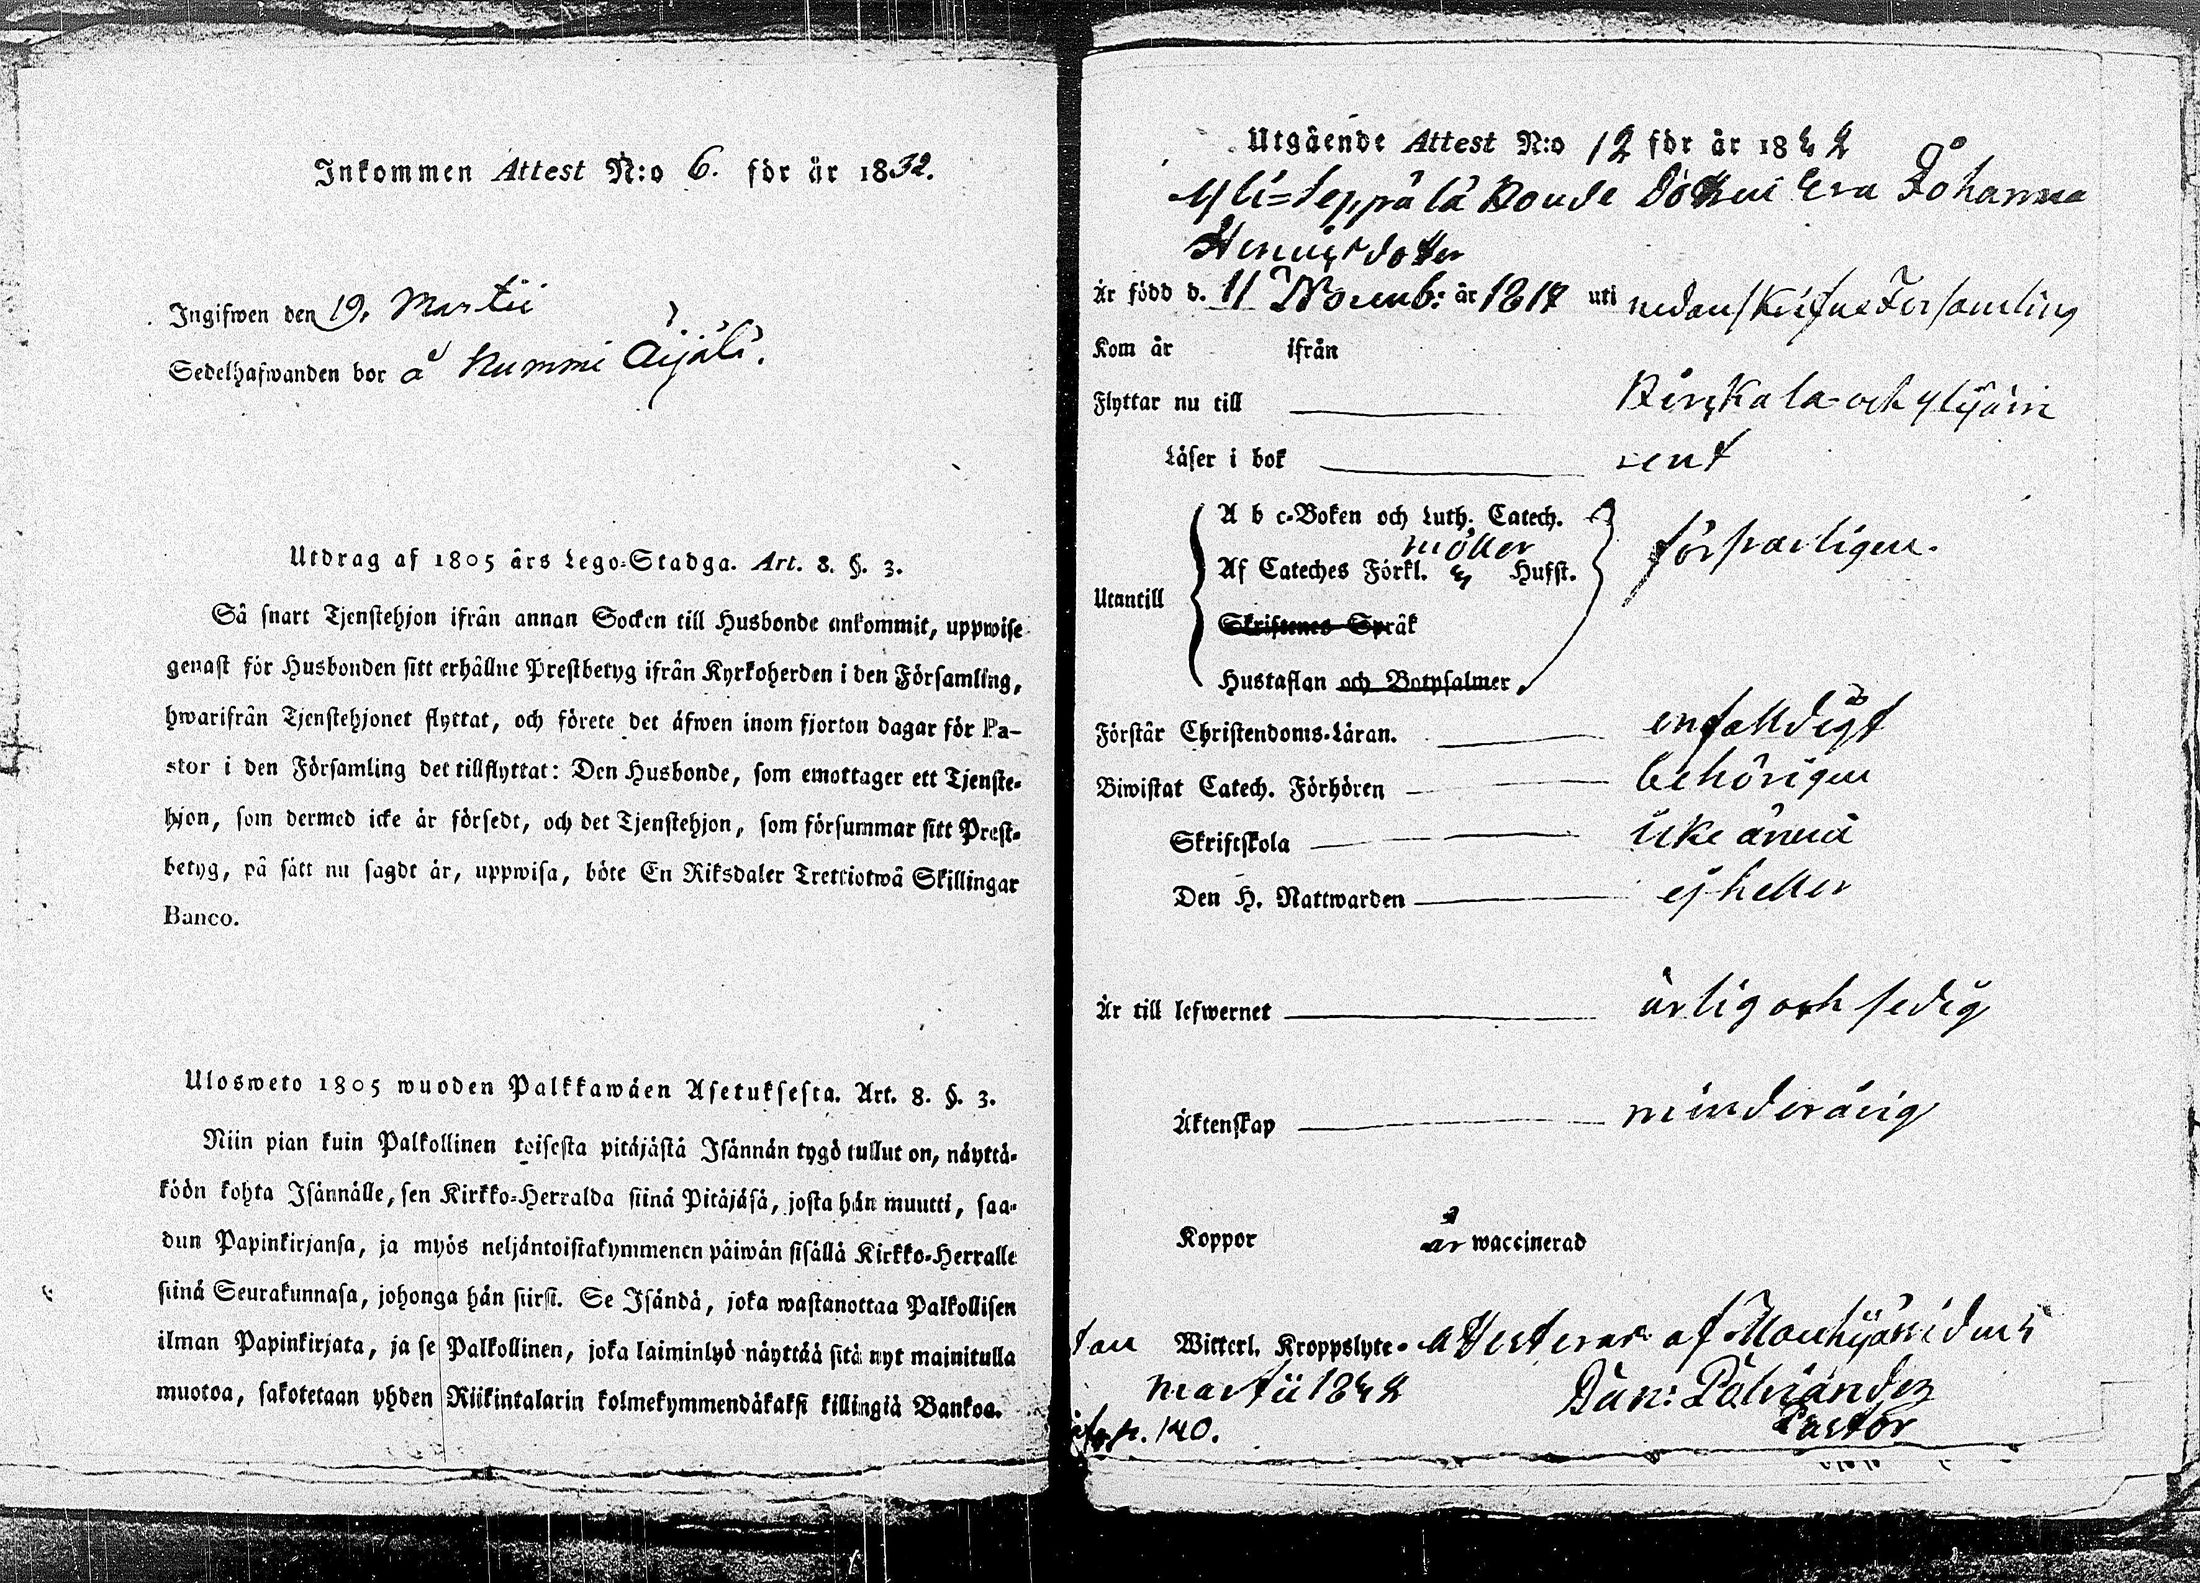 Inkommen Attest N:o 6. för år 1832.
Ingifwen den 19. Martii
Sedelhafwanden bor å Nummi Äijälä.
Utdrag af 1805 års Lego-Stadga. Art. 8. §. 3.
Så snart Tjenstehjon ifrån annan Socken till Husbonde ankommit, uppwise
genast för Husbonden sitt erhållne Prestbetyg ifrån Kyrkoherden i den Församling,
hwarifrån Tjenstehjonet flyttat, och förete det äfwen inom fjorton dagar för Pa-
stor i den Församling det tillflyttat: Den Husbonde, som emottager ett Tjenste-
hjon, som dermed icke är försedt, och det Tjenstehjon, som försummar sitt Prest-
betyg, på sätt nu sagdt är, uppwisa, böte En Riksdaler Trettiotwå Skillingar
Banco.
Ulosweto 1805 wuoden Palkkawäen Asetuksesta. Art. 8. §. 3.
Niin pian kuin Palkollinen toisesta pitäjästä Isännän tygö tullut on, näyttä-
köön kohta Isännälle, sen Kirkko-Herralda siinä Pitäjäsä, josta hän muutti, saa-
dun Papinkirjansa, ja myös neljäntoistakymmenen päiwän sisällä Kirkko-Herralle
siinä Seurakunnasa, johonga hän siirsi. Se Isändä, joka wastanottaa Palkollisen
ilman Papinkirjata, ja se Palkollinen, joka laiminlyö näyttää sitä nyt mainitulla
muotoa, sakotetaan yhden Riikintalarin kolmekymmendäkaksi killingiä Bankoa.
Utgående Attest N:o 12 för år 1832
Yli=Seppälä Bonde Dottren Eva Johanna
Henricsdotter
Är född d. 11 Novemb: år 1817 uti nedanskrifne Församling
Kom år ifrån
Flyttar nu till Birckala och Ylijäin
Läser i bok rent
A b c-Boken och Luth. Catech.
möller
Af Cateches Förkl. Husst. försvarligen.
Utantill
Skriftenes Språk
Hustaflan och Botpsalmer,
Förstår Christendoms-Läran. enfalldigt
Biwistat Catech. Förhören behörigen
Skriftskola icke ännu
Den H. Nattwarden ej heller
Är till lefwernet ärlig och sedig
Äktenskap minderårig
Koppor är waccinerad
utan Witterl. Kroppslyte. attesterar af Mouhijärvi den 5
martii 1832 Dan: Pålviander
p. 140. Pastor